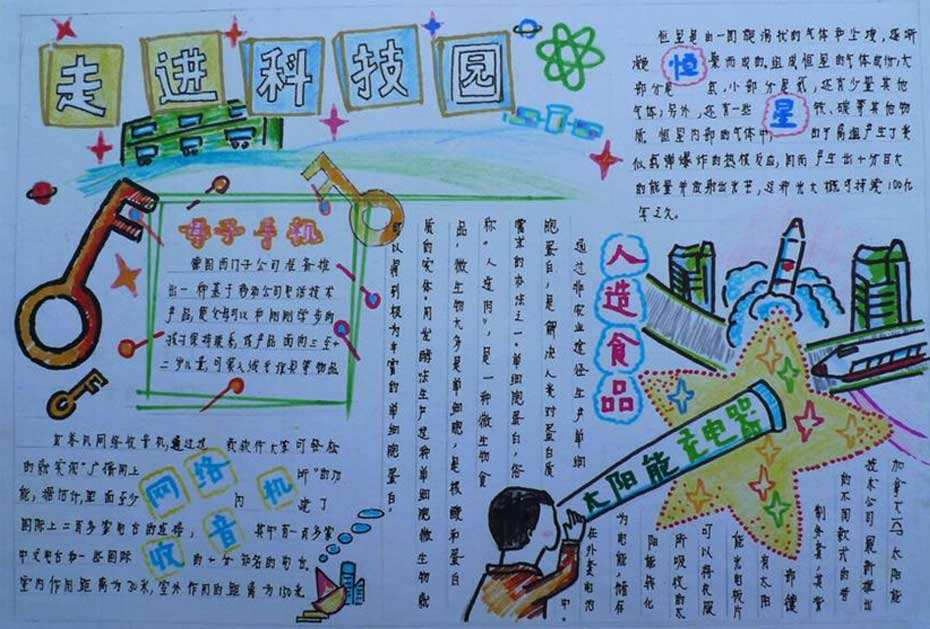 走进科技园
恒星是由一团旋涡状的气体和尘埃，逐渐
凝聚而成的，组成恒星的气体成份，大
部分是氢，小部分是氦，还有少量其他
气体；另外，还有一些铁、碳等其他物
质。恒星内部的气体中
似氢弹爆炸的热核反应，因而产生出十分巨大
的能量并放射出光芒，这种光大概可持续100亿
年之久。
恒
星
母子手机
德国西门子公司准备推
出一种基于移动公司电话技术
产品，使父母可以和刚刚学步的
孩子保持联系，该产品面向三至十
二岁儿童，可装入线毛挂包等物品
人造食品
通过非农业途径生产单细
胞蛋白，是解决人类对蛋白质
需求的办法之一。单细胞蛋白，俗
称“人造肉”，是一种微生物食
品，微生物大多是单细胞，是核酸和蛋白
质的实体。用发酵法生产这种单细胞微生物就
可以得到极为丰富的单细胞蛋白
网络
收音机
如养风网络收音机，通过这款软件大家可轻松
的就实现“广播网上听”的功
能，据估计，里面至少内建了
国际上二百多家电台的连接，其中有一百多家
中文电台和一些国际的十分知名的电台
室内作用距离为30米，室外作用的距离为150米
太阳能充电器
加拿大ICP太阳能
技术公司最新推出
的不同款式的
能光电板片
可以将我服
所吸收的太
阳能转化
为电能，储存
在外套电池
中。